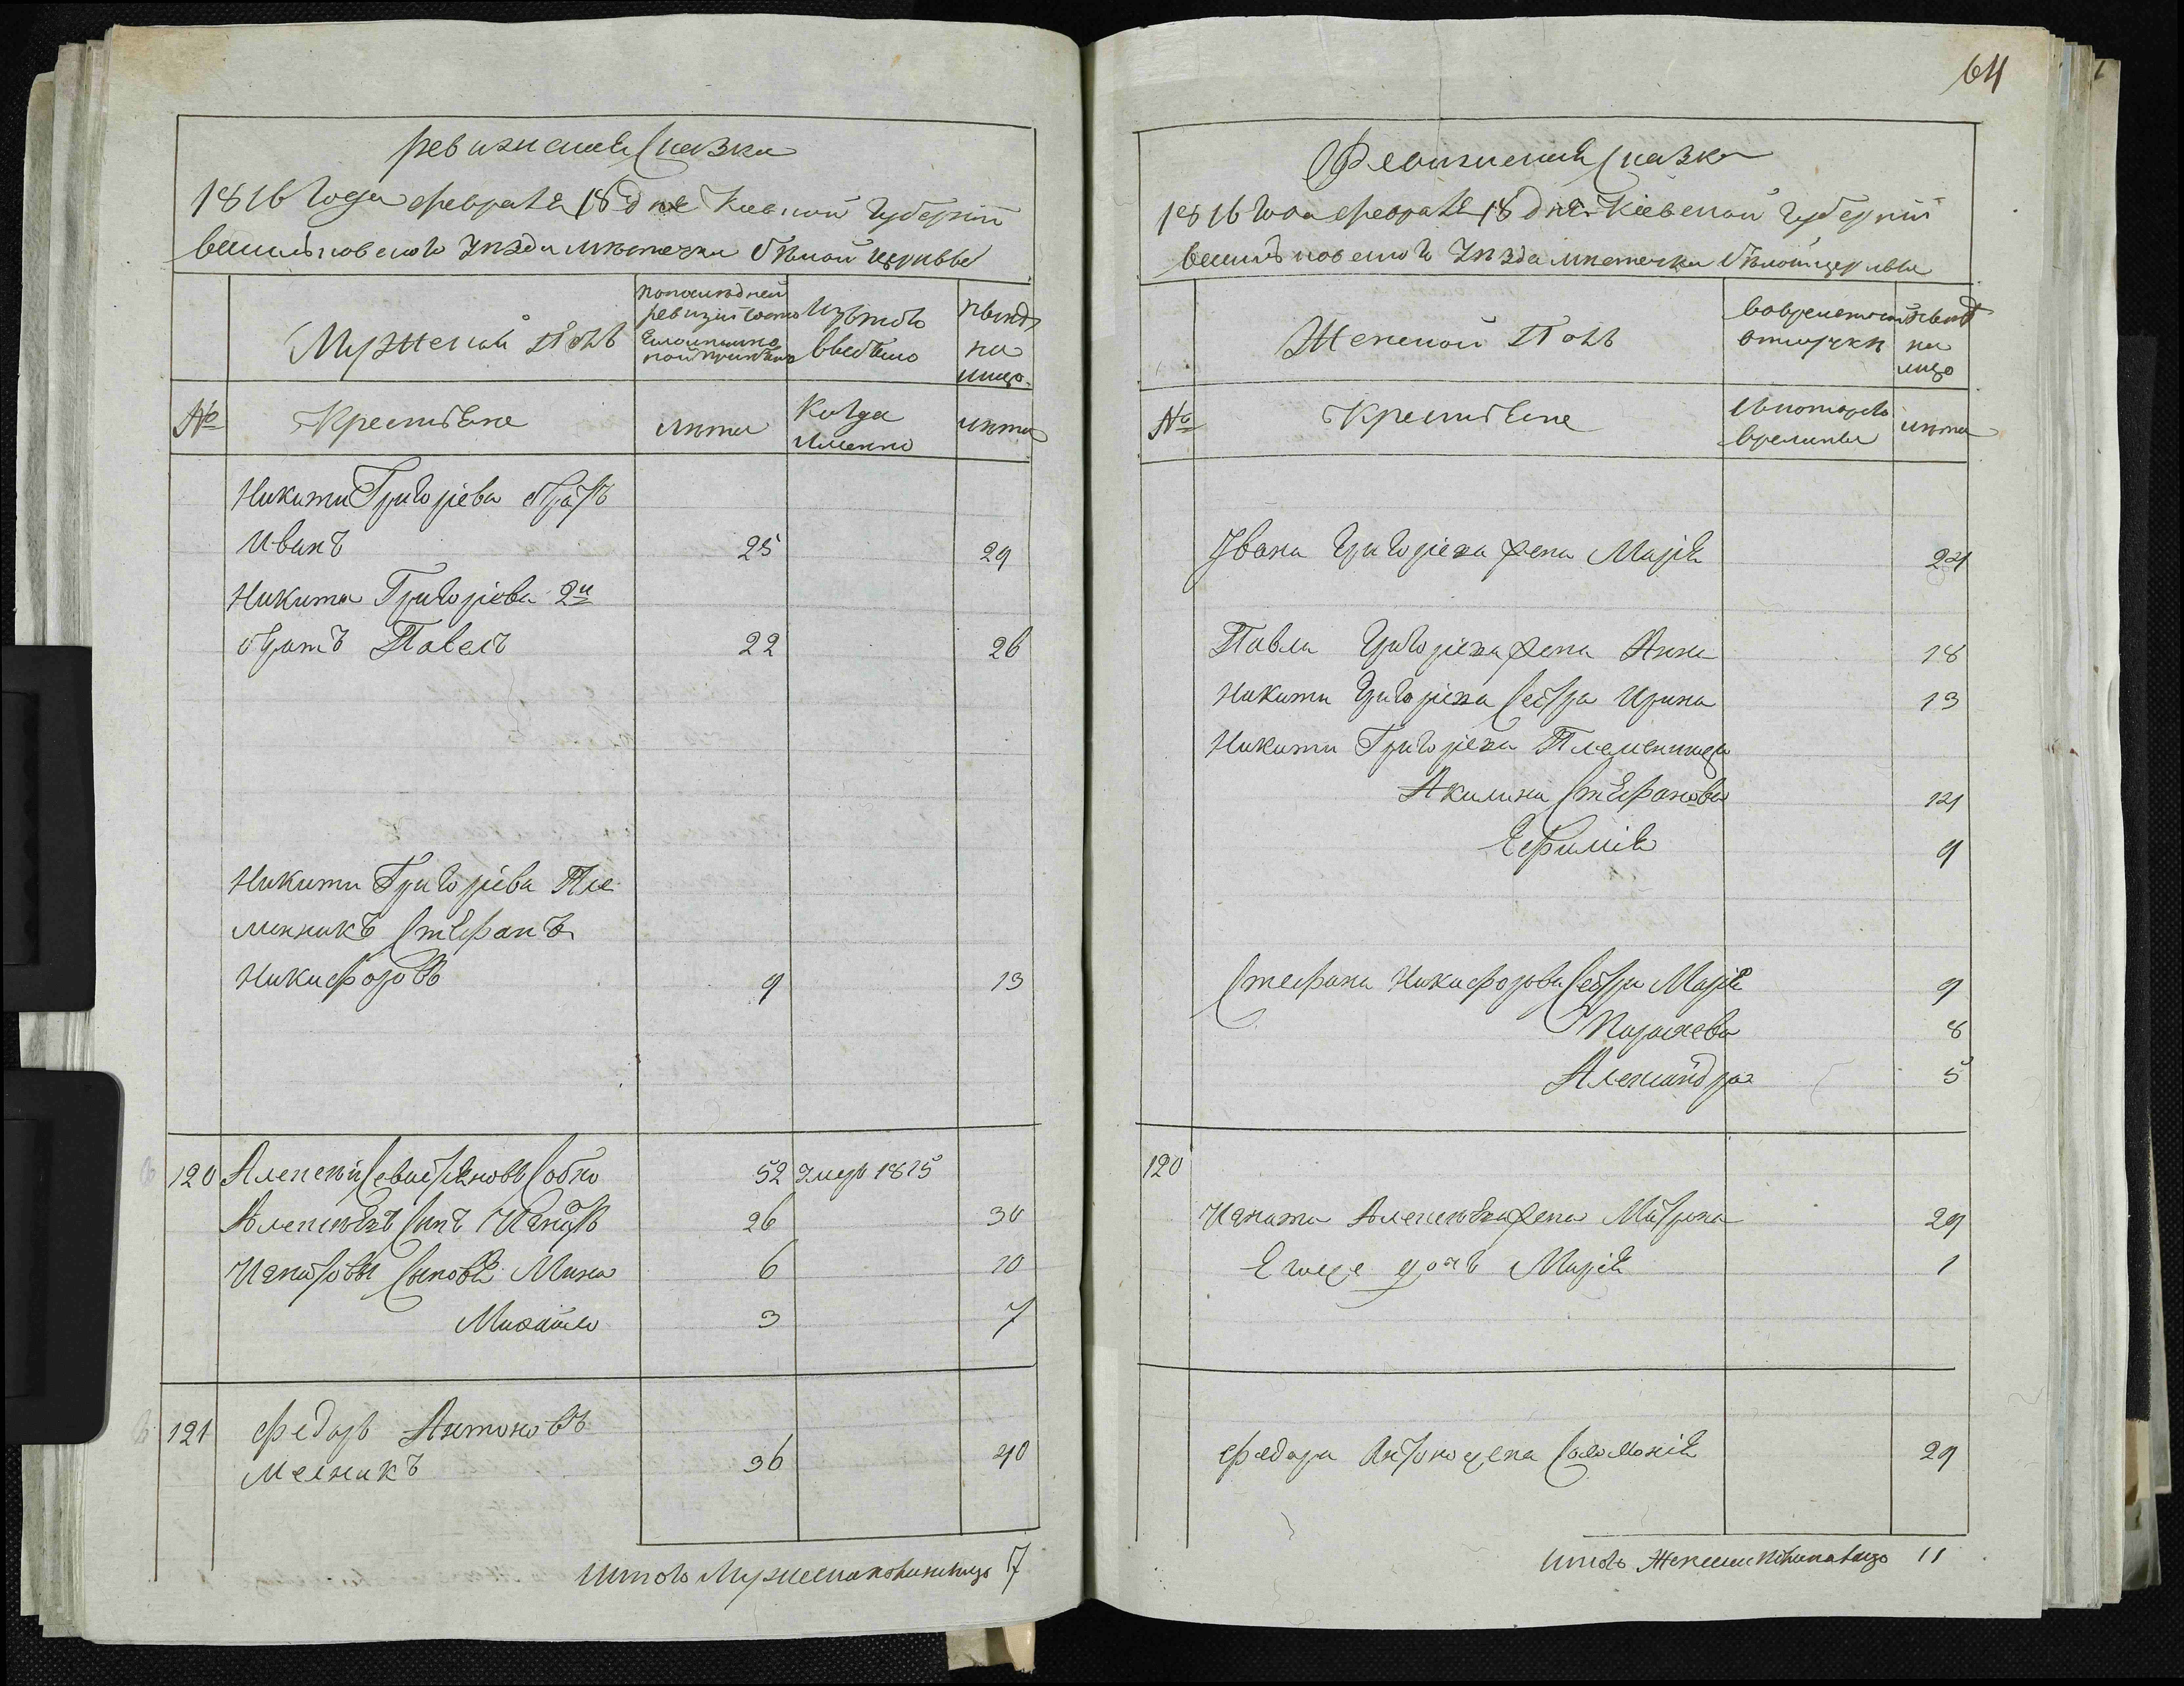 Ревизская Сказка
1816 года февраля 18 дня Киевской Губернiи
Васильковского Уезда местечка Белой Церквы
Мужеский Полъ
По последней ревизiи состояло и после оной прибыло
Изъ того выбыло
Ныне на лицо
№
Крестьяне
лета
Когда именно
лета
Никиты Григорiева братъ
Иванъ 25 29
Никита Григорiева 2й
братъ Павелъ 22 26
Никиты Григорiева Пле
менникъ Стефанъ
Никифоровъ 9 13
120 Алексей Севастьяновъ Собко 52 Умеръ 1815
Алексеевъ Сынъ Игнатъ 26 30
Игнатовы Сыновья Мина 6 10
Михайло 3 7
121 Федоръ Антоновъ
Мелникъ 36 40
Итого Мужеска пола на лицо 7
64
Ревизская Сказка
1816 года февраля 18 дня Кiевской Губернiи
Васильковского Уезда местечка Белой Церквы
Женской Полъ
Во временной отлучке
Ныне на лицо
№
Крестьяне
Съ которого времены
лета
Ивана Григорiева жена Марiя 24
Павла Григорiева жена Анна 18
Никиты Григорiева Сестра Ирина 13
Никиты Григорiева Племенница
Акилина Стефанова 14
Ефимiя 9
Стефана Никифорова Сестра Марiя 9
Параскева 8
Александра 5
120
Игната Алексеева жена Матрона 29
Егоже дочь Марiя 1
Федора Антона жена Соломонiя 29
Итого Женска пола на лицо 11